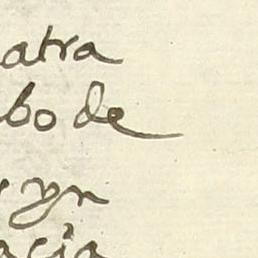 atra
bo de
yn
acia